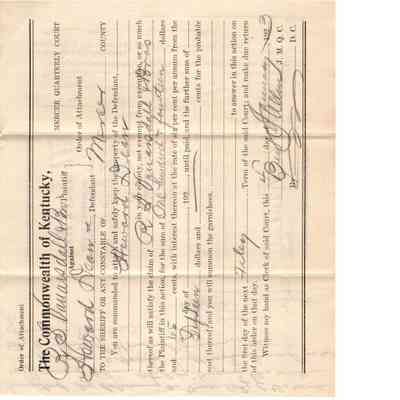 Order of Attachment
The Commonwealth of Kentucky,
MERCER QUARTERLY COURT
Plaintiff
Against
Order of Attachment
Howard Dean
Defendant
TO THE SHERIFF OR ANY CONSTABLE OF Mercer COUNTY
You are commanded to attach and safely keep the property of the Defendant,
Howard Dean
in your county, not exempt from execution, or so much
thereof as will satisfy the claim of
the Plaintiff in this action for the sum of One Hundred & fourteen dollars
and cents, with interest thereon at the rate of six per cent per annum from the
day of , 192 until paid, and the further sum of
Fifteen dollars and cents for the probable
cost thereof; and you will summon the garnishees,
to answer in this action on
the first day of the next Term of the said Court; and make due return
of this order on that day.
Witness my hand as Clerk of said Court, this day January 1923
J. M. Q. C.
By D. C.